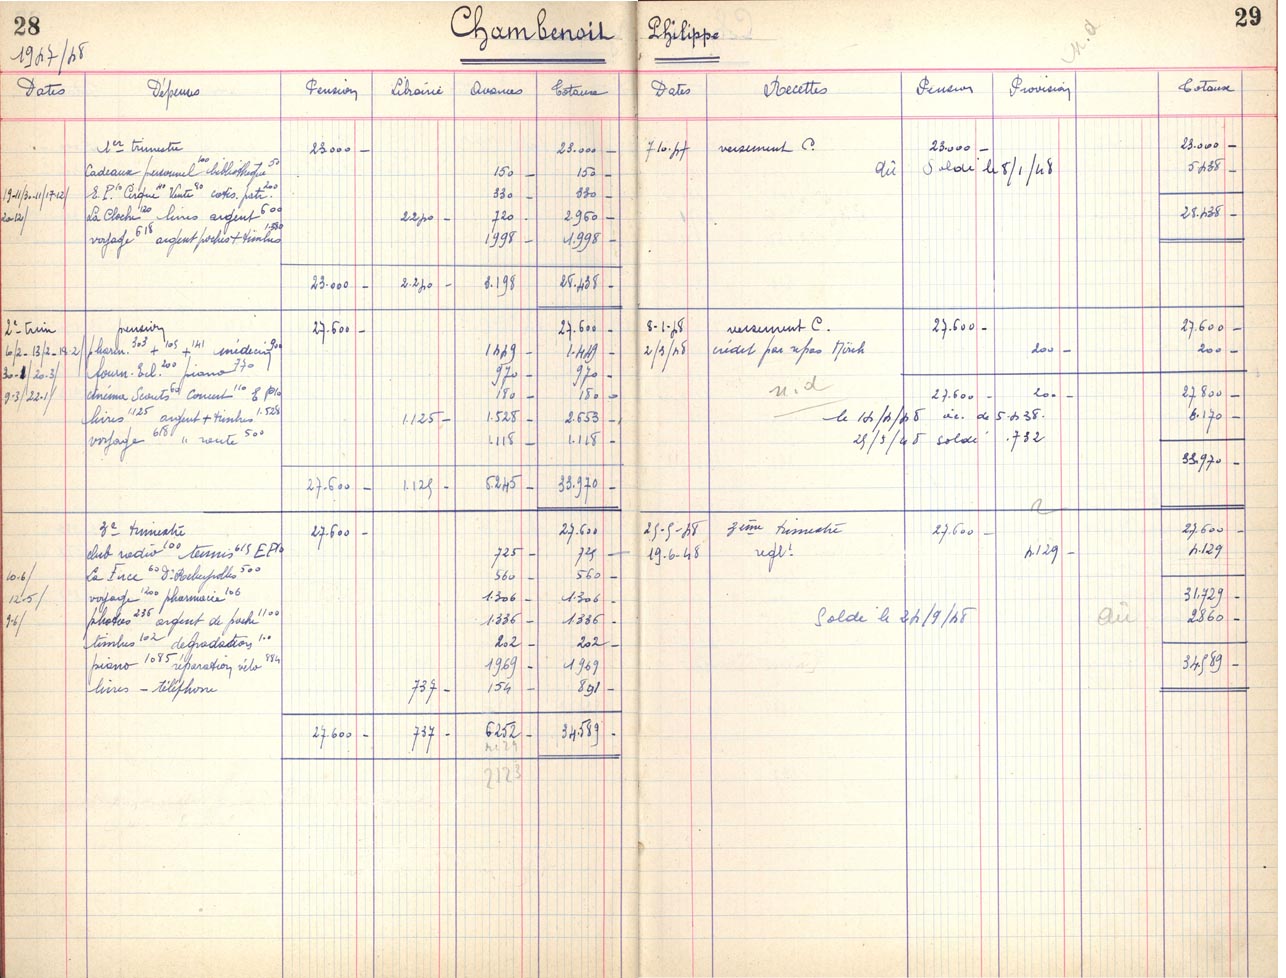 28
1947/48
Chambenoit Philippe
29
n.d
Dates Dépenses Pension Librairie Avances Totaux
Dates Recettes Pension Provision Totaux
1er trimestre 23.000 - 23.000 -
Cadeaux personnel 100 bibliothèque 50 150 - 150 -
19-11/30-11/17-12/ E.P. 10 Cirque Vente cotis. patr. 200 330 - 330 -
20-12/ La Cloche 120 livres argent 600 2.240 - 720 - 2.960 -
voyage 618 argent poches + timbres 1.380 1998 - 1.998 -
23.000 - 2.240 - 3.198 28.438 -
7-10-47 versement C. 23.000 - 23.000 -
dû Soldé le 8/1/48 5438 -
28.438 -
2e trim pension 27.600 - 27.600 -
pharm. 303 + 105 + 141 médecin 900 1449 - 1.449 -
30-1/20-3/ fourn. Ecl. 200 piano 770 970 - 970 -
9-3/22-1/ cinéma Scouts 60 concert 110 E P 10 180 - 180 -
livres 1125 argent + timbres 1.528 1.125 - 1.528 - 2.653 -
voyage 618 " route 500 1.118 - 1.118 -
27.600 - 1.125 - 5.245 - 33.970 -
8-1-48 versement C. 27.600 - 27.600 -
2/3/48 crédit par repas 200 - 200 -
27.600 - 200 - 27.800 -
n.d
le 14/4/48 vic. de 5.438. 6.170 -
25/5/48 soldé .732
33.970 -
3e trimestre 27.600 - 27.600
club radio 100 tennis 615 EP 10 725 - 725 -
10.6/ La Force 60 Dr 500 560 - 560 -
12.5/ voyage 1200 pharmacie 106 1.306 - 1.306 -
9.6/ photos 236 argent de poche 1100 1.336 - 1.336 -
timbres 102 dégradation 100 202 - 202 -
piano 1085 réparation vélo 884 1969 - 1969 -
livres - téléphone 737 - 154 - 891 -
27.600 - 737 - 6252 - 34.589 -
4129
2123
25-5-48 3ème trimestre 27.600 - 27.600 -
19.6.48 reglt 4.129 - 4.129
31.729 -
Soldé le 24/9/48 dû 2860 -
34.589 -